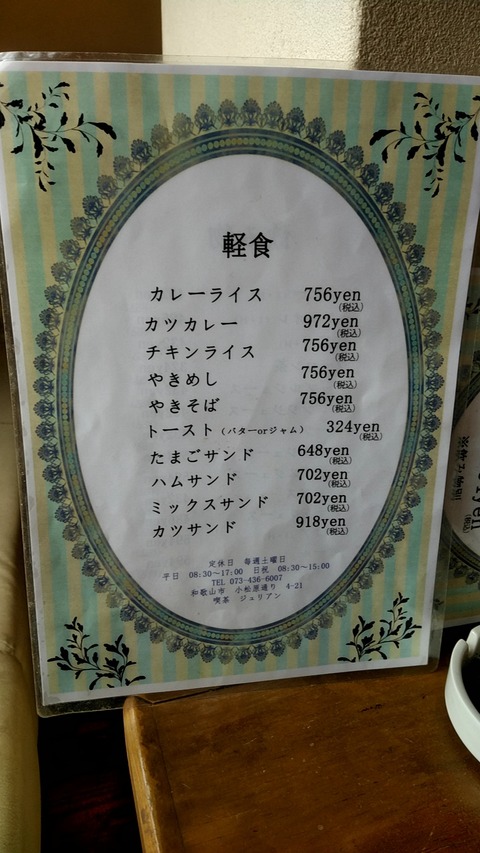 軽食
カレーライス 756yen
(税込)
カツカレー 972yen
(税込)
チキンライス 756yen
(税込)
やきめし 756yen
(税込)
やきそば 756yen
(税込)
トースト(バターorジャム) 324yen
(税込)
たまごサンド 648yen
(税込)
ハムサンド 702yen
(税込)
ミックスサンド 702yen
(税込)
カツサンド 918yen
(税込)
定休日 毎週土曜日
平日 08:30~17:00 日祝 08:30~15:00
TEL 073-436-6007
和歌山市 小松原通り 4-21
喫茶 ジュリアン